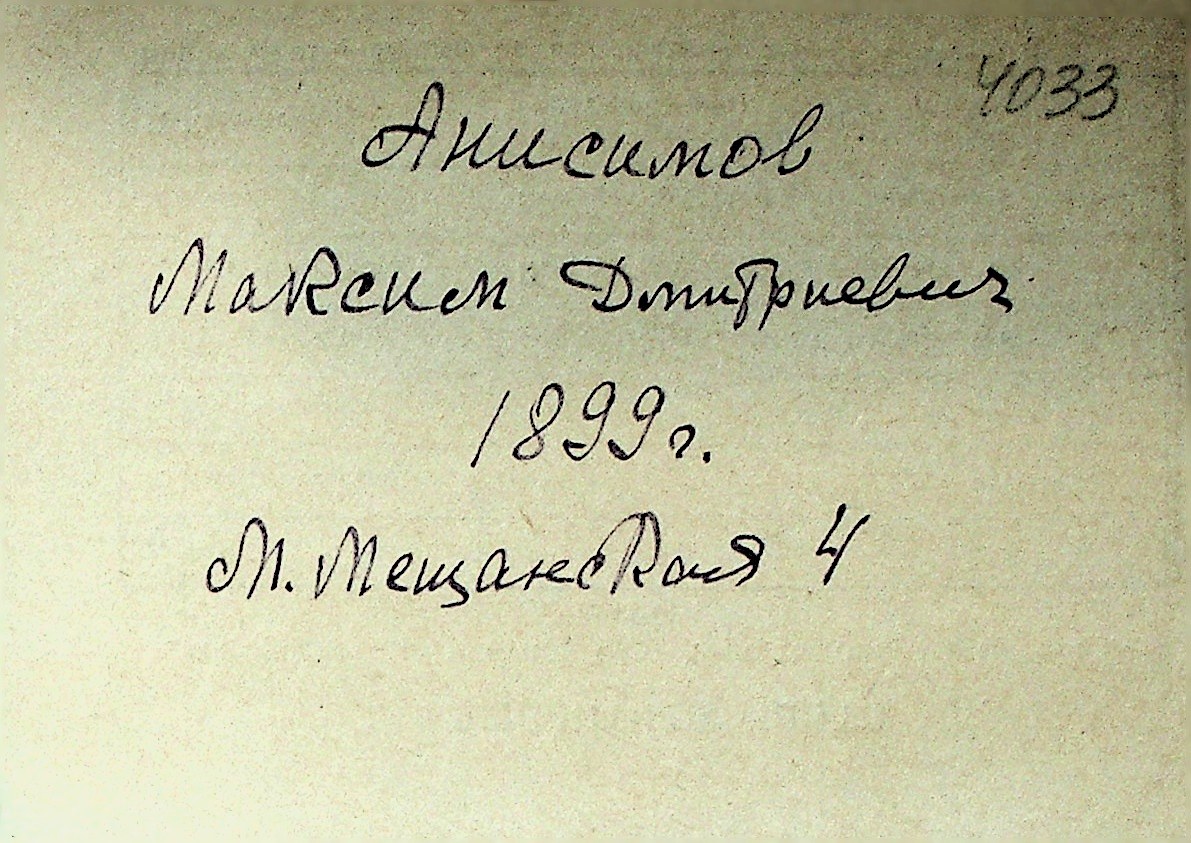 4033
Анисимов
Максим Дмитриевич
1899г.
М. Мещанская 4